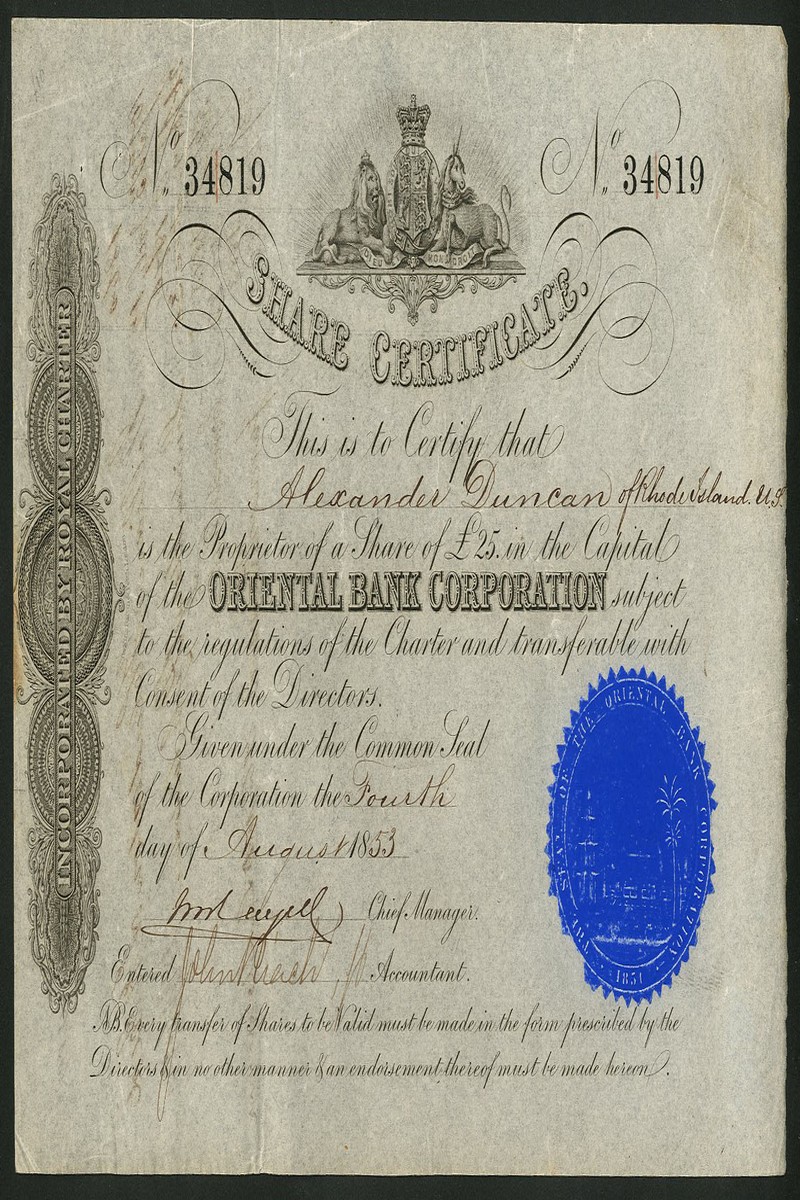 No. 34819
No. 34819
HONI SOIT
MON DROIT
SHARE CERTIFICATE.
This is to Certify that
Alexander Duncan of Rhode Island. U.S.
is the Proprietor of a Share of £25. in the Capital
of the ORIENTAL BANK CORPORATION subject
to the regulations of the Charter and transferable with
Consent of the Directors.
Given under the Common Seal
of the Corporation the Fourth
day of August 1853
Chief Manager.
Entered John Accountant.
NB. Every transfer of Shares to be Valid must be made in the form prescribed by the
Directors & in no other manner & an endorsement thereof must be made hereon.
INCORPORATED BY ROYAL CHARTER
SEAL OF THE ORIENTAL BANK CORPORATION
1851